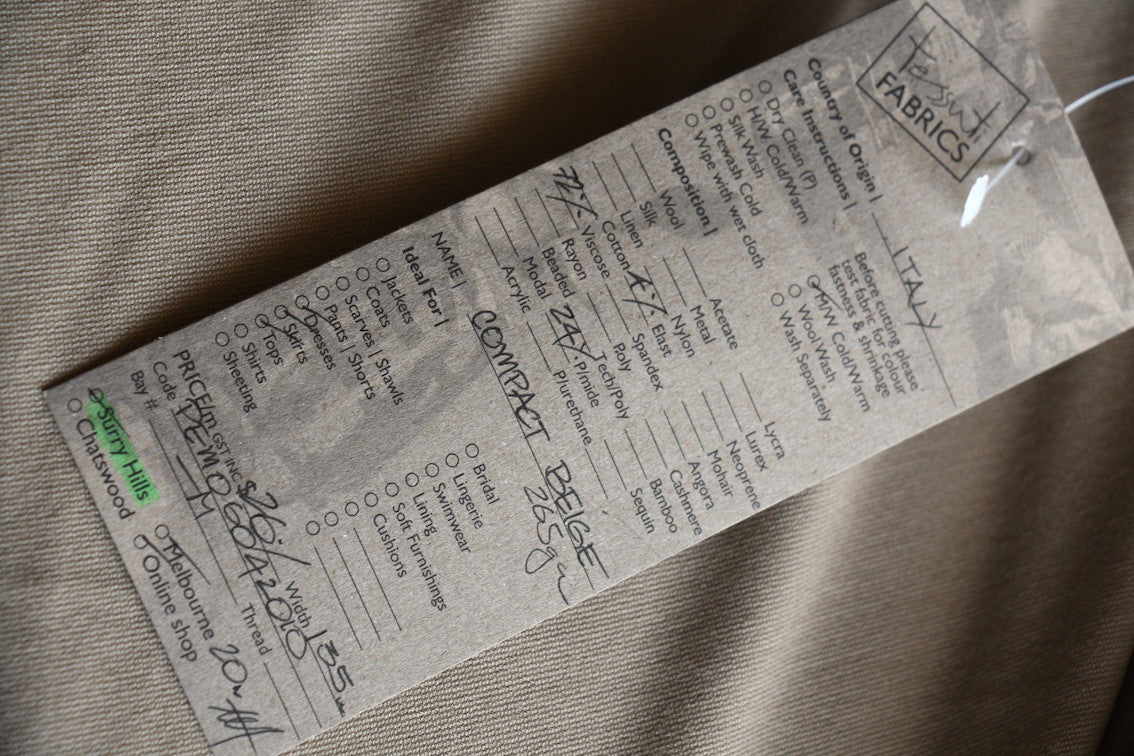 tessuti
FABRICS
Country of Origin | ITALY
Care Instructions |
Dry Clean (P)
H/W Cold/Warm
Silk Wash
Prewash Cold
Wipe with wet cloth
Before cutting please
test fabric for colour
fastness & shrinkage
M/W Cold/Warm
Wool Wash
Wash Separately
Composition |
Wool
Silk
Linen
Cotton
72% Viscose
Rayon
Beaded
Modal
Acrylic
Acetate
Metal
Nylon
4% Elast
Spandex
Poly
Tech/Poly
24% P/mide
P/urethane
Lycra
Lurex
Neoprene
Mohair
Angora
Cashmere
Bamboo
Sequin
NAME | COMPACT BEIGE
265gm
Ideal For |
Jackets
Coats
Scarves | Shawls
Pants | Shorts
Dresses
Skirts
Tops
Shirts
Sheeting
Bridal
Lingerie
Swimwear
Lining
Soft Furnishings
Cushions
PRICE/m GST INC $26/ Width 135
Code
Bay # M Thread
Surry Hills
Chatswood
Melbourne
Online shop 20m